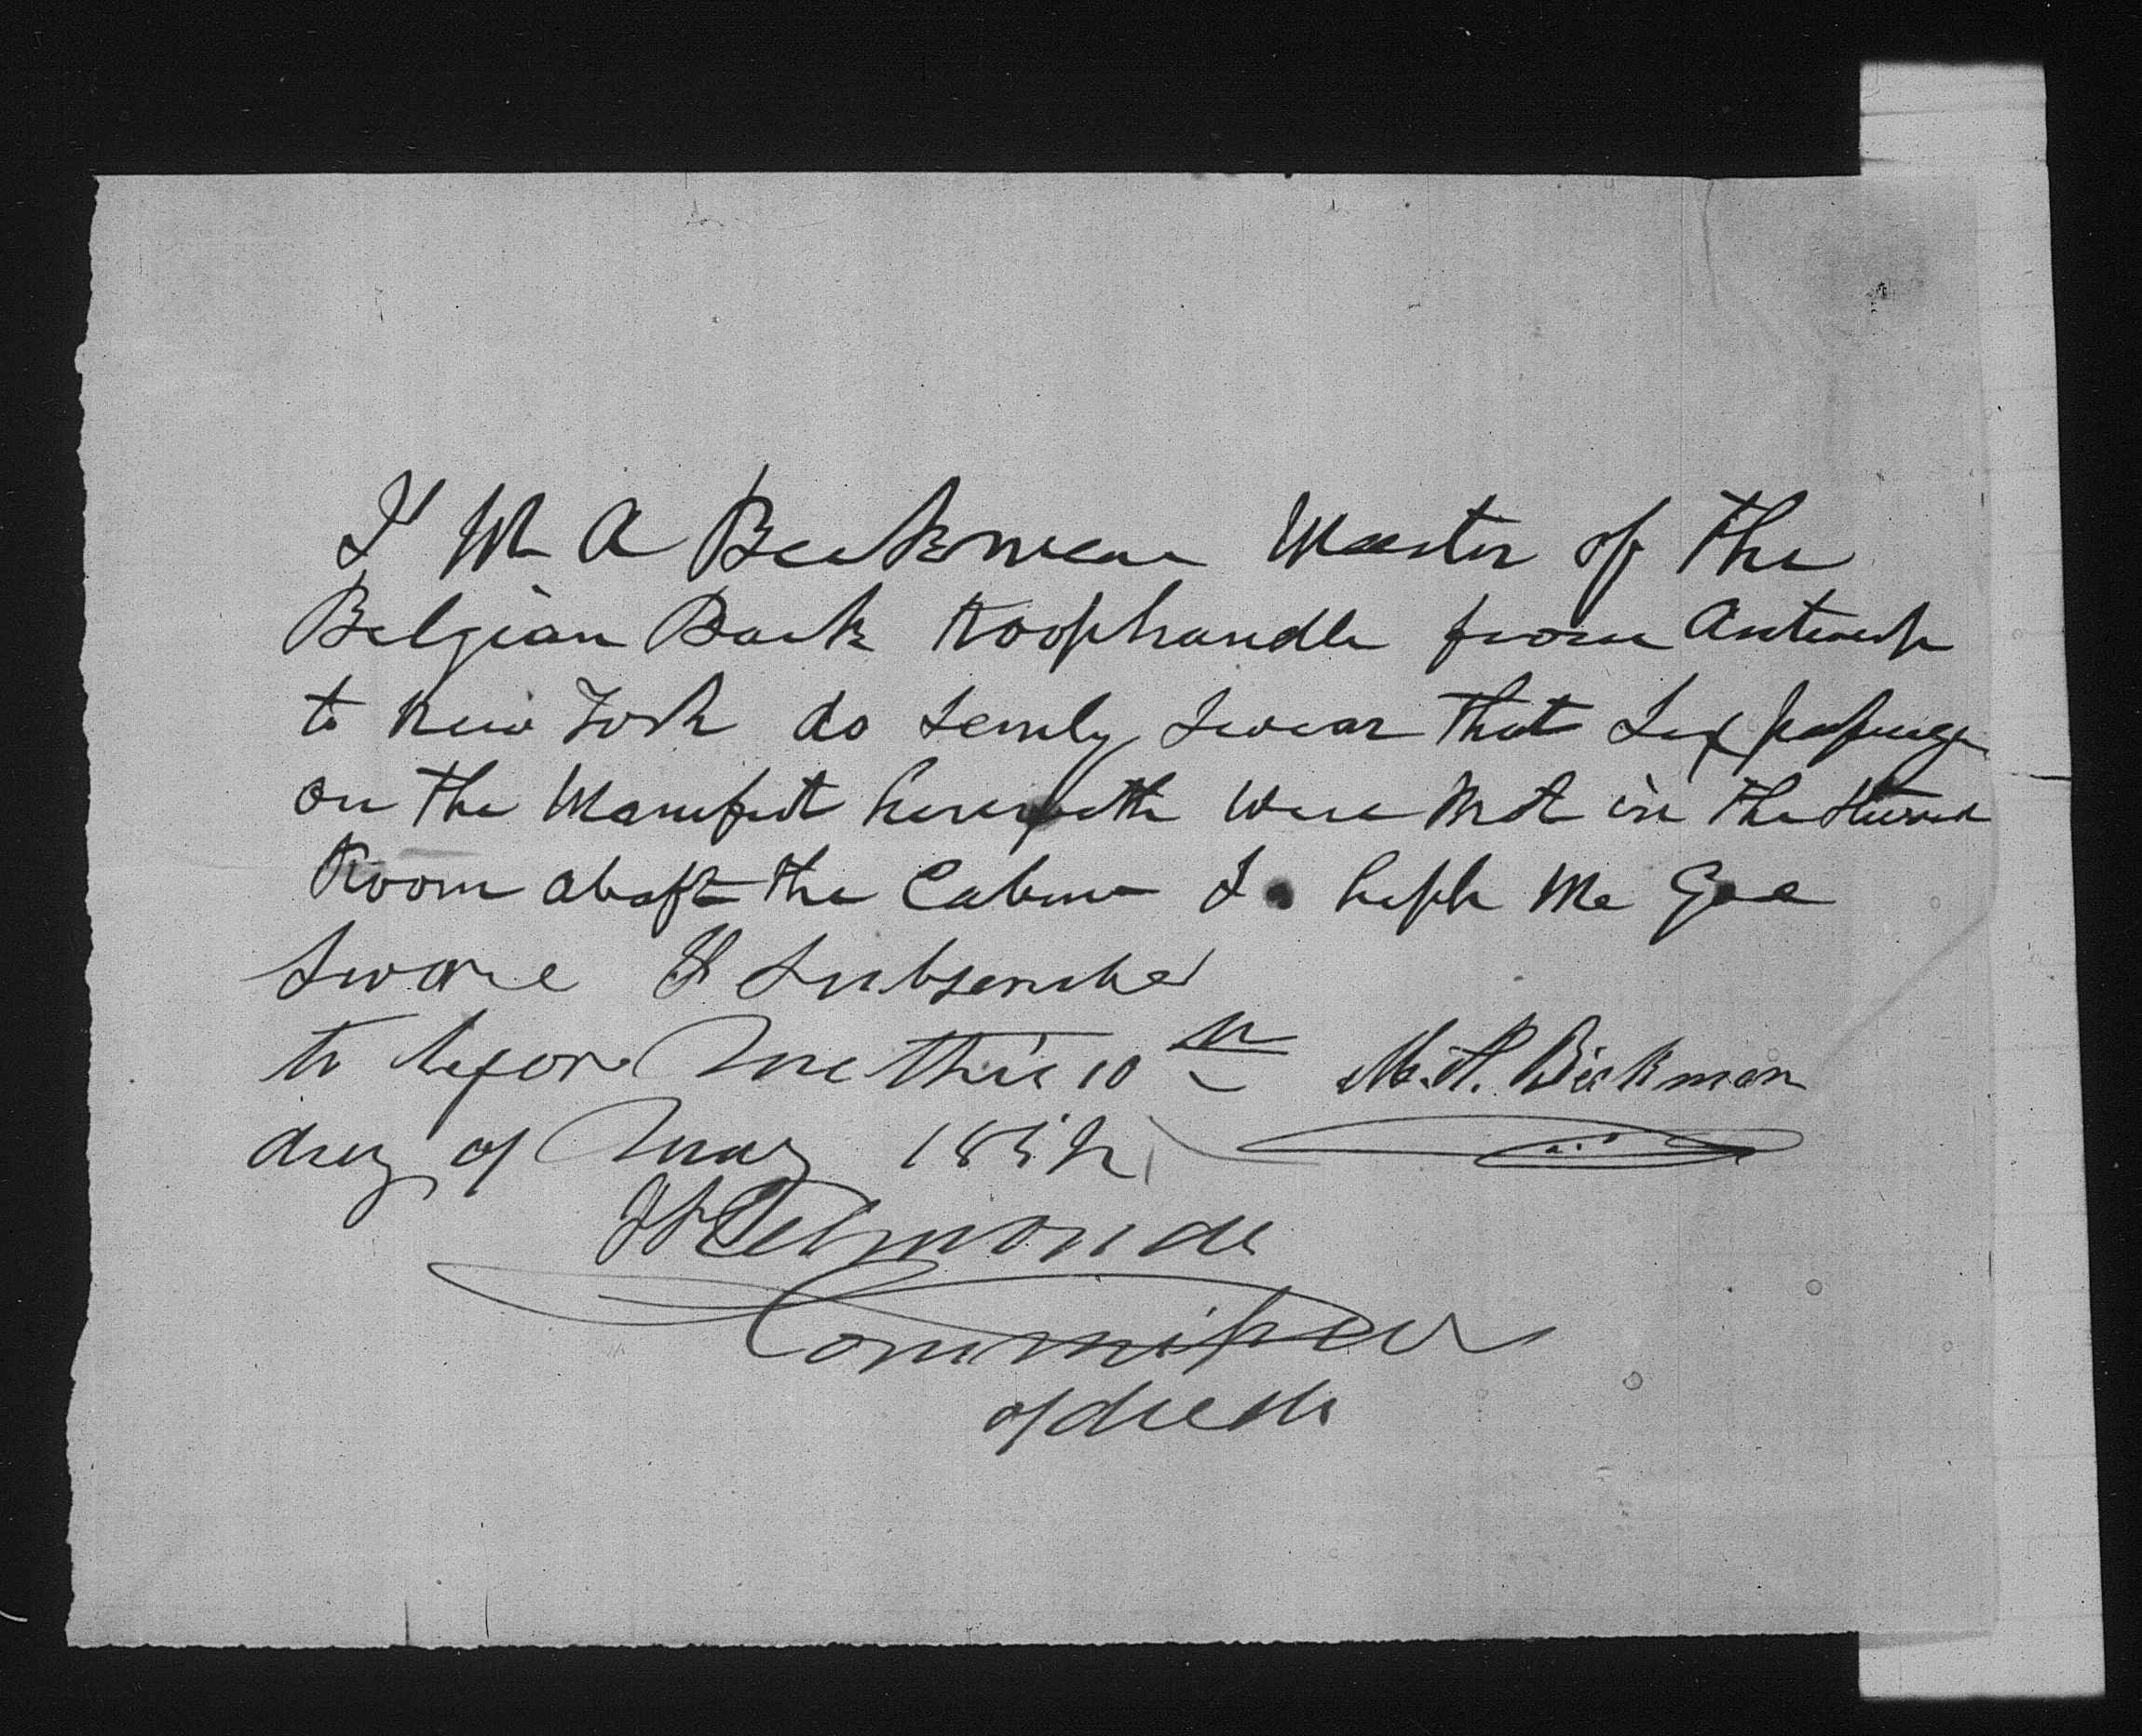 I W A Beekman Master of the
Belgian Bark Koophandle from Antwerp
to New York do Semly Swear that Six passenger
on the Manifest herewith were Not in the
Room abaft the Cabin So help Me God
Swore & Subscribed
to before Me this 10th M. A. Beekman
day of May
Commissioner
of deeds